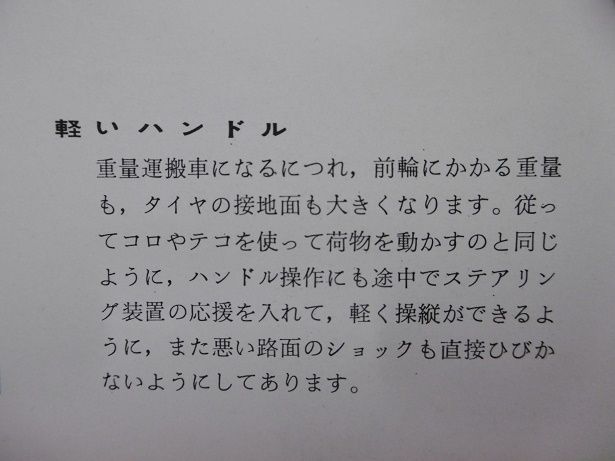 軽いハンドル
重量運搬車になるにつれ，前輪にかかる重量
も，タイヤの接地面も大きくなります。従っ
てコロやテコを使って荷物を動かすのと同じ
ように，ハンドル操作にも途中でステアリン
グ装置の応援を入れて，軽く操縦ができるよ
うに，また悪い路面のショックも直接ひびか
ないようにしてあります。